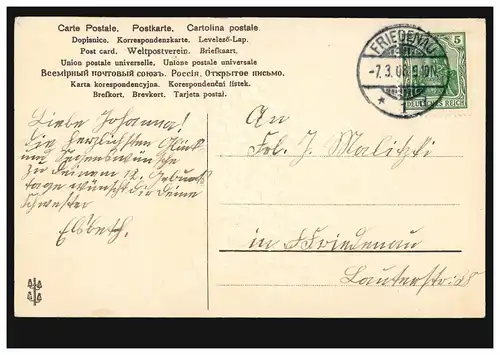 Carte Postale. Postkarte. Cartolina postale.
Dopisnice. Korrespondenzkarte. Levelező-Lap.
Post card. Weltpostverein. Briefkaart.
Union postale universelle. Unione postale universale
Всемірный почтовый союзъ. Россія. Открытое письмо.
Karta korespondencyjna. Korespondenční lístek.
Brefkort. Brevkort. Tarjeta postal.
FRIEDENAU
-7.3.08.
* 1
5
DEUTSCHES REICH
Liebe Johanna!
die herzlichsten Glück
und Segenswünsche
zu deinem 12. Geburts
tage wünscht dir deine
Schwester
Elsbeth.
An
Frl. J. Malitzki
in Friedenau
Lauterstr.